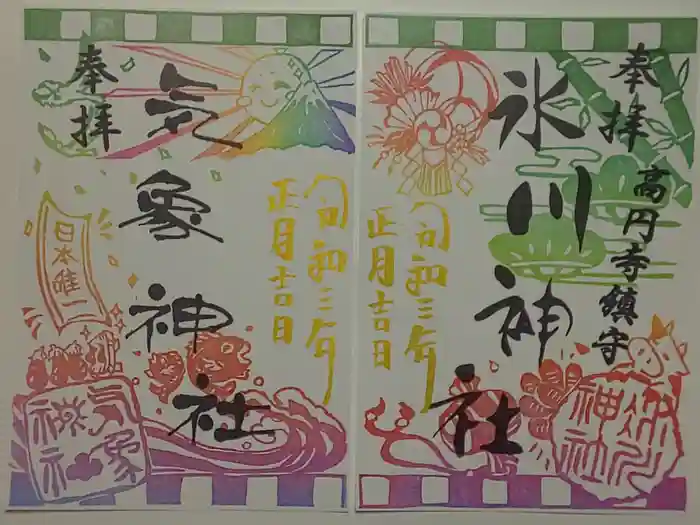 奉拝
高円寺鎮守
氷川神社
令和三年
正月吉日
氷川神社
奉拝
気象神社
令和三年
正月吉日
日本唯一
気象神社